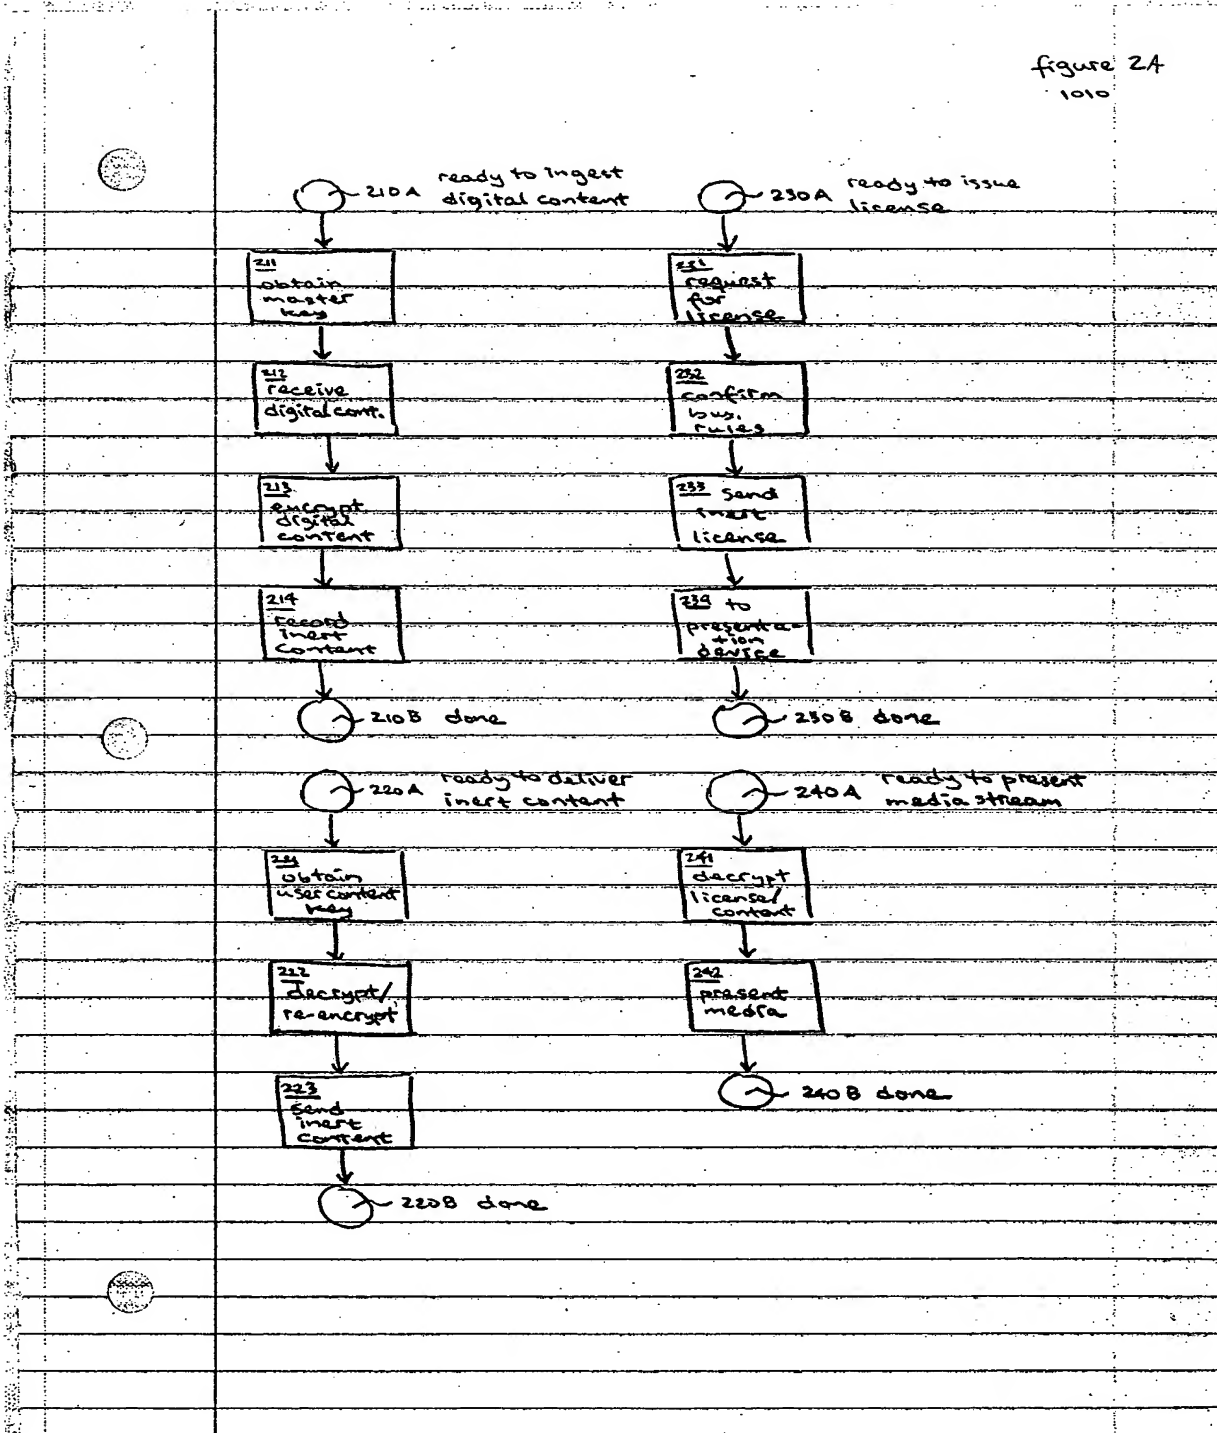 figure 2A
1010
210A ready to ingest
digital content
211
obtain
master
key
212
receive
digital cont.
213
encrypt
digital
content
214
record
inert
content
210B done
220A ready to deliver
inert content
221
obtain
user content
key
222
decrypt/
re-encrypt
223
send
inert
content
220B done
230A ready to issue
license
231
request
for
license
232
confirm
bus.
rules
233 send
inert
license
234 to
presenta-
tion
device
230B done
240A ready to present
media stream
241
decrypt
license/
content
242
present
media
240B done